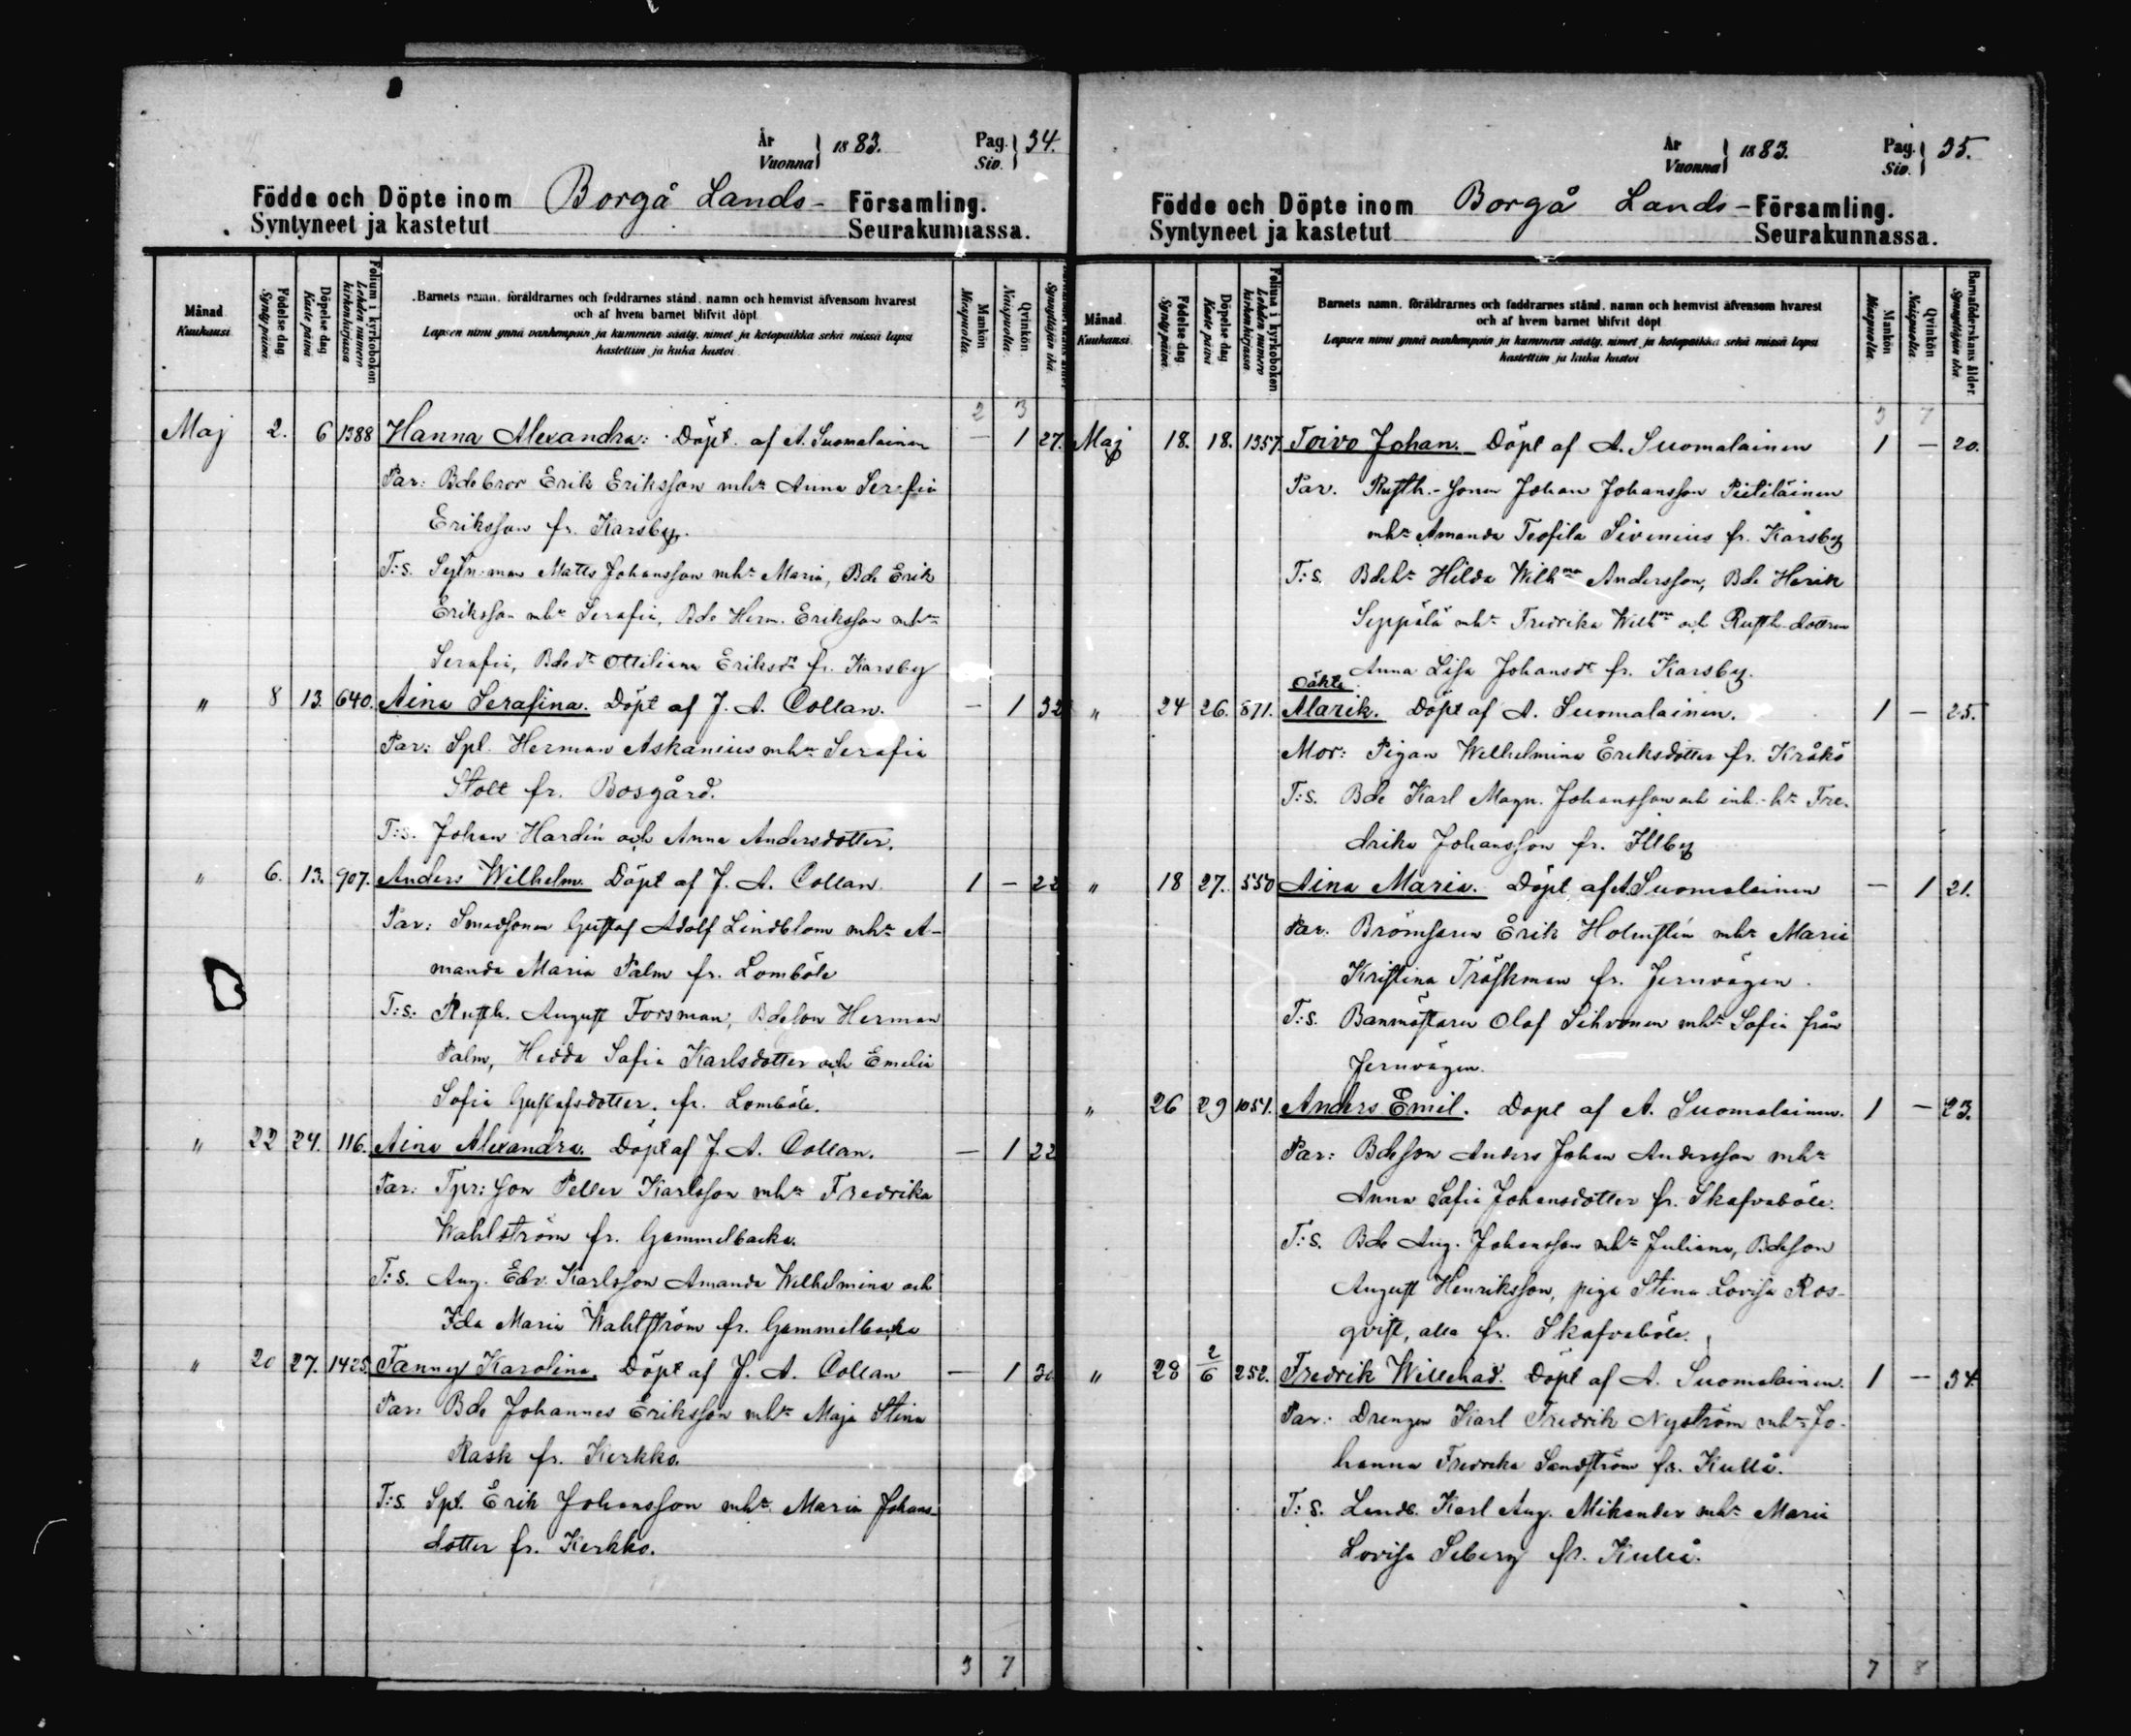 År
Vuonna } 1883.
Pag.
Siv. } 34.
Födde och Döpte inom Borgå Lands- Församling.
Syntyneet ja kastetut Seurakunnassa.
Månad
Kuukausi.
Födelse dag
Synty päivä.
Döpelse dag
Kaste päivä
Folium i kyrkoboken
Lehden numero
kirkonkirjassa
Barnets namn, föräldrarnes och faddrarnes stånd, namn och hemvist äfvensom hvarest
och af hvem barnet blifvit döpt
Lapsen nimi ynnä vanhempain ja kummein sääty, nimet ja kotopaikka sekä missä lapsi
kastettiin ja kuka kastoi
Mankön
Miespuolta.
Qvinkön
Naispuolta.
Synnyttäjän ikä.
2 3
Maj 2. 6 1388 Hanna Alexandra: Döpt af A. Suomalainen — 1 27.
Par: Bdebror Erik Eriksson mhn Anna Serafia
Eriksson fr. Karsby.
T:s. Matts Johansson mhn Maria, Bde Erik
Eriksson mhn Serafia, Bde Herm. Eriksson mhn
Serafia, Bdedr Ottiliana Eriksdr fr. Karsby
" 8 13. 640. Aina Serafina. Döpt af J. A. Collan. — 1 32
Par: Spl. Herman Askanius mhn Serafia
Stolt fr. Bosgård.
T:s. Johan Hardén och Anna Andersdotter.
" 6. 13. 907. Anders Wilhelm. Döpt af J. A. Collan. 1 — 22
Par: Smedsonen Gustaf Adolf Lindblom mhn A-
manda Maria Palm fr. Lomböle
T:s. Rusth. August Forsman, Bdeson Herman
Palm, Hedda Sofia Karlsdotter och Emelia
Sofia Gustafsdotter. fr. Lomböle.
" 22 24. 116. Aina Alexandra. Döpt af J. A. Collan. — 1 22
Par: Tpr: son Petter Karlsson mhn Fredrika
Wahlström fr. Gammelbacka.
T:s. Aug. Edv. Karlsson Amanda Wilhelmina och
Ida Maria Wahlström fr. Gammelbacka
" 20 27. 1425. Fanny Karolina. Döpt af J. A. Collan — 1 30
Par: Bde Johannes Eriksson mhn Maja Stina
Rask fr. Kerkko.
T:s. Spl. Erik Johansson mhn Maria Johans-
dotter fr. Kerkko.
3 7
År
Vuonna } 1883.
Pag.
Siv. } 35.
Födde och Döpte inom Borgå Lands- Församling.
Syntyneet ja kastetut Seurakunnassa.
Månad
Kuukausi.
Födelse dag
Synty päivä.
Döpelse dag
Kaste päivä
Folium i kyrkoboken
Lehden numero
kirkonkirjassa
Barnets namn, föräldrarnes och faddrarnes stånd, namn och hemvist äfvensom hvarest
och af hvem barnet blifvit döpt
Lapsen nimi ynnä vanhempain ja kummein sääty, nimet ja kotopaikka sekä missä lapsi
kastettiin ja kuka kastoi
Mankön
Miespuolta.
Qvinkön
Naispuolta.
Barnaföderskans ålder.
Synnyttäjän ikä.
3 7
Maj 18. 18. 1357. Toivo Johan. Döpt af A. Suomalainen 1 — 20.
Par. Rusth.-sonen Johan Johansson Piitiläinen
mhn Amanda Teofila Sivenius fr. Karsby
T:s. Bdehn Hilda Wilhna Andersson, Bde Henrik
Seppälä mhn Fredrika Wilhna och Rusth.dottren
Anna Lisa Johansdr fr. Karsby.
Oäkta
" 24 26. 871. Alarik. Döpt af A. Suomalainen. 1 — 25.
Mor: Pigan Wilhelmina Eriksdotter fr. Kråkö
T:s. Bde Karl Magn. Johansson och inh.-hn Fre-
drika Johansson fr. Illby
" 18 27. 550 Aina Maria. Döpt af A. Suomalainen — 1 21.
Par. Brömsaren Erik Holmstén mhn Maria
Kristina Träskman fr. Jernvägen.
T:s. Banmästaren Olof Sihvonen mhn Sofia från
Jernvägen.
" 26 29 1051. Anders Emil. Döpt af A. Suomalainen. 1 — 23.
Par: Bdeson Anders Johan Andersson mhn
Anna Sofia Johansdotter fr. Skafvaböle.
T:s. Bde Aug. Johansson mhn Juliana, Bdeson
August Henriksson, piga Stina Lovisa Ros-
qvist, alla fr. Skafvaböle.
" 28 2/6 252. Fredrik Willehad. Döpt af A. Suomalainen. 1 — 34.
Par: Drengen Karl Fredrik Nyström mhn Jo-
hanna Fredrika Sandström fr. Kullå.
T:s. Landb. Karl Aug. Mikander mhn Maria
Lovisa Seberg fr. Kullå.
7 8